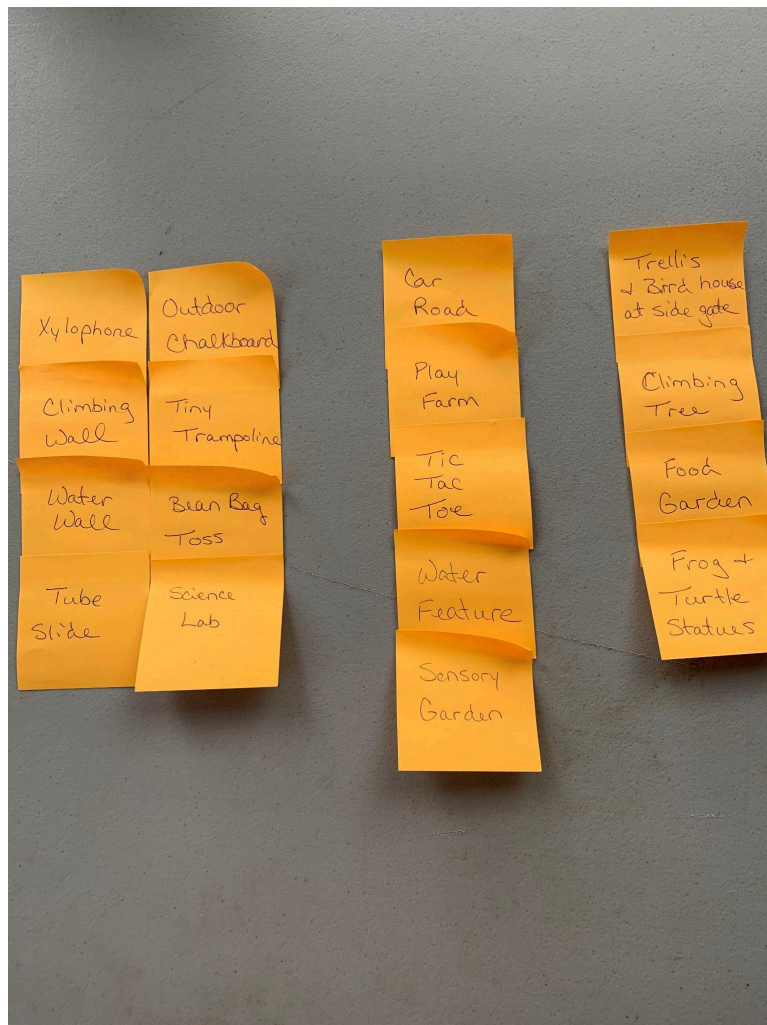 Xylophone
Climbing
Wall
Water
Wall
Tube
Slide
Outdoor
Chalkboard
Tiny
Trampoline
Bean Bag
Toss
Science
Lab
Car
Road
Play
Farm
Tic
Tac
Toe
Water
Feature
Sensory
Garden
Trellis
+ Bird house
at side gate
Climbing
Tree
Food
Garden
Frog +
Turtle
Statues